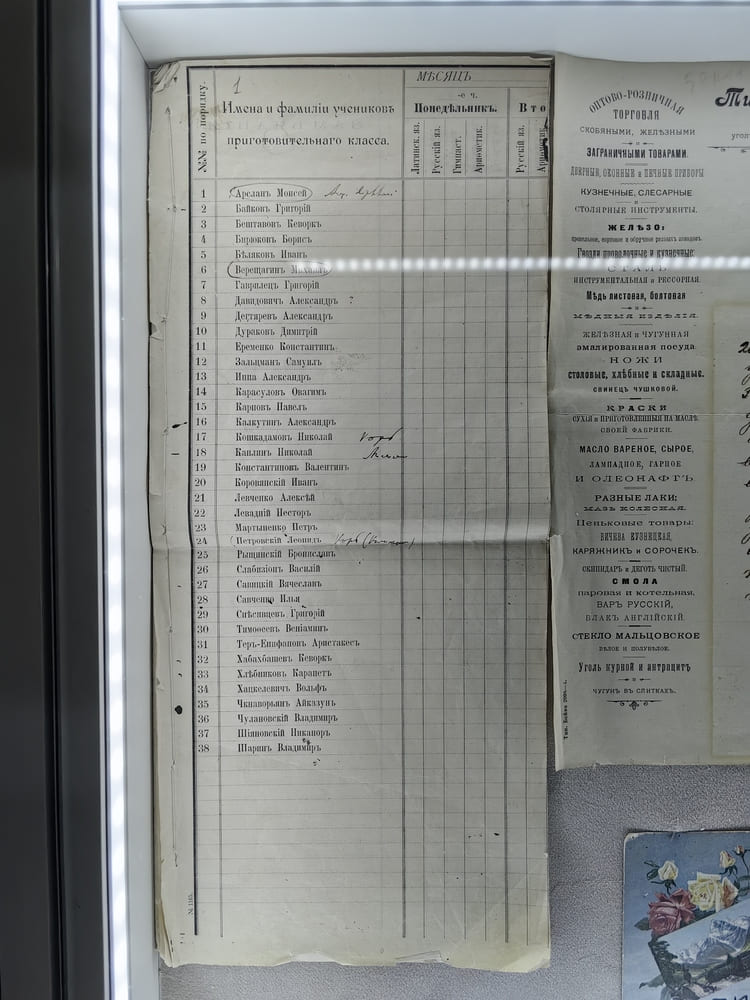 1
№№ по порядку.
Имена и фамиліи учениковъ
приготовительнаго класса.
МѢСЯЦЪ
-е ч.
Понедѣльникъ.
Вто
Латинск. яз.
Русскій яз.
Гимнаст.
Ариѳметик.
Русскій яз.
Ариѳметик.
1 Арсланъ Моисей
2 Байковъ Григорій
3 Бештавовъ Кеворкъ
4 Бирюковъ Борисъ
5 Бѣляковъ Иванъ
6 Верещагинъ Михаилъ
7 Гаврилецъ Григорій
8 Давидовичъ Александръ ?
9 Дегтяревъ Александръ
10 Дураковъ Димитрій
11 Еременко Константинъ
12 Зальцманъ Самуилъ
13 Инна Александръ
14 Карасуловъ Овагимъ
15 Карповъ Павелъ
16 Калкутинъ Александръ
17 Кошкадамовъ Николай
18 Каплинъ Николай
19 Константиновъ Валентинъ
20 Коровянскій Иванъ
21 Левченко Алексѣй
22 Левадній Несторъ
23 Мартыненко Петръ
24 (Петровскій Леонидъ
25 Рыщинскій Брониславъ
26 Слабизіонъ Василій
27 Савицкій Вячеславъ
28 Савченко Илья
29 Снѣсивцевъ Григорій
30 Тимоѳеевъ Веніаминъ
31 Теръ-Епифановъ Аристакесъ
32 Хабахбашевъ Кеворкъ
33 Хлѣбниковъ Карапетъ
34 Хацкелевичъ Вольфъ
35 Чкнаворьянъ Айказунъ
36 Чулановскій Владимиръ
37 Шіяновскій Никаноръ
38 Шаринъ Владимиръ
№ 1165.
ОПТОВО-РОЗНИЧНАЯ
ТОРГОВЛЯ
СКОБЯНЫМИ, ЖЕЛѢЗНЫМИ
и
ЗАГРАНИЧНЫМИ ТОВАРАМИ.
ДВЕРНЫЕ, ОКОННЫЕ и ПЕЧНЫЕ ПРИБОРЫ
КУЗНЕЧНЫЕ, СЛЕСАРНЫЕ
и
СТОЛЯРНЫЕ ИНСТРУМЕНТЫ.
ЖЕЛѢЗО:
Гвозди проволочные и кузнечные:
СТАЛЬ
ИНСТРУМЕНТАЛЬНАЯ и РЕССОРНАЯ.
Мѣдь листовая, болтовая
и
МѢДНЫЯ ИЗДѢЛІЯ.
ЖЕЛѢЗНАЯ и ЧУГУННАЯ
эмалированная посуда
НОЖИ
столовые, хлѣбные и складные.
СВИНЕЦЪ ЧУШКОВОЙ.
КРАСКИ
СУХІЯ и ПРИГОТОВЛЕННЫЯ НА МАСЛѢ
СВОЕЙ ФАБРИКИ.
МАСЛО ВАРЕНОЕ, СЫРОЕ,
ЛАМПАДНОЕ, ГАРНОЕ
И ОЛЕОНАФТЪ
РАЗНЫЕ ЛАКИ:
МАЗЬ КОЛЕСНАЯ.
Пеньковые товары:
БИЧЕВА КУЗНЕЦКАЯ,
КАРЯЖНИКЪ и СОРОЧЕКЪ.
СКИПИДАРЪ и ДЕГОТЬ ЧИСТЫЙ.
СМОЛА
паровая и котельная,
ВАРЪ РУССКІЙ,
БЛАКЪ АНГЛІЙСКІЙ.
СТЕКЛО МАЛЬЦОВСКОЕ
БѢЛОЕ И ПОЛУБѢЛОЕ.
Уголь курной и антрацитъ
и
ЧУГУНЪ ВЪ СЛИТКАХЪ.